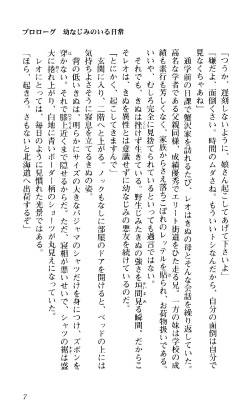 プロローグ　幼なじみのいる日常
「つうか、遅刻しないように、娘さん起こしてあげて下さいよ」
「嫌だよ、面倒くさい。時間のムダさね。もういいトシなんだから、自分の面倒は自分で
見なくちゃあね」
通学前の日課で蟹沢家を訪れるたび、レオはきぬの母とそんな会話を繰り返していた。
高名な学者である父親同様、成績優秀でエリート街道をひた走る兄。一方の妹は学校の成
績も素行も芳しくなく、家族からさえ落ちこぼれのレッテルを貼られ、お荷物扱いである。
いや、むしろ完全に見捨てられているといっても過言ではない。
それでも、きぬは挫けず生きている。野生じみたきぬの強さを垣間見る瞬間、だからこ
そレオは、きぬを異性として意識せずに幼なじみの悪友を続けているのだ。
「とにかく、起こしてきますよ」
玄関に入り、二階へと上がる。ノックもなしに部屋のドアを開けると、ベッドの上には
気持ちよさそうに寝息を立てるきぬの姿。
背の低いきぬは、明らかにサイズの大きなパジャマのシャツだけを身につけ、ズボンを
穿かない。それで膝上近くまで隠せるからだ。ただ、寝相が悪いせいで、シャツの裾は盛
大に捲れ上がり、白地に青いボーダー柄のショーツが丸見えになっていた。
レオにとっては、毎日のように見慣れた光景ではある。
「ほら、起きろ。さもないと北海道へ出荷するぞ」
7